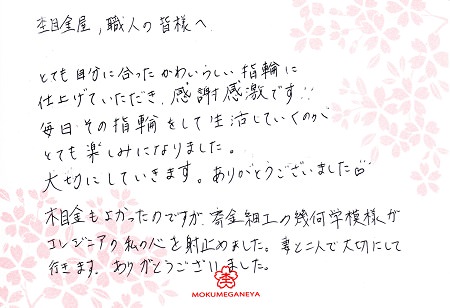 杢目金屋，職人の皆様へ
とても自分に合ったかわいらしい指輪に
仕上げていただき、感謝感激です!!
毎日その指輪をして生活していくのが、
とても楽しみになりました。
大切にしていきます。ありがとうございました♡
木目金もよかったのですが、寄金細工の幾何学模様が
エンジニアの私の心を射止めました。妻と二人で大切にして
行きます。ありがとうございました。
MOKUMEGANEYA